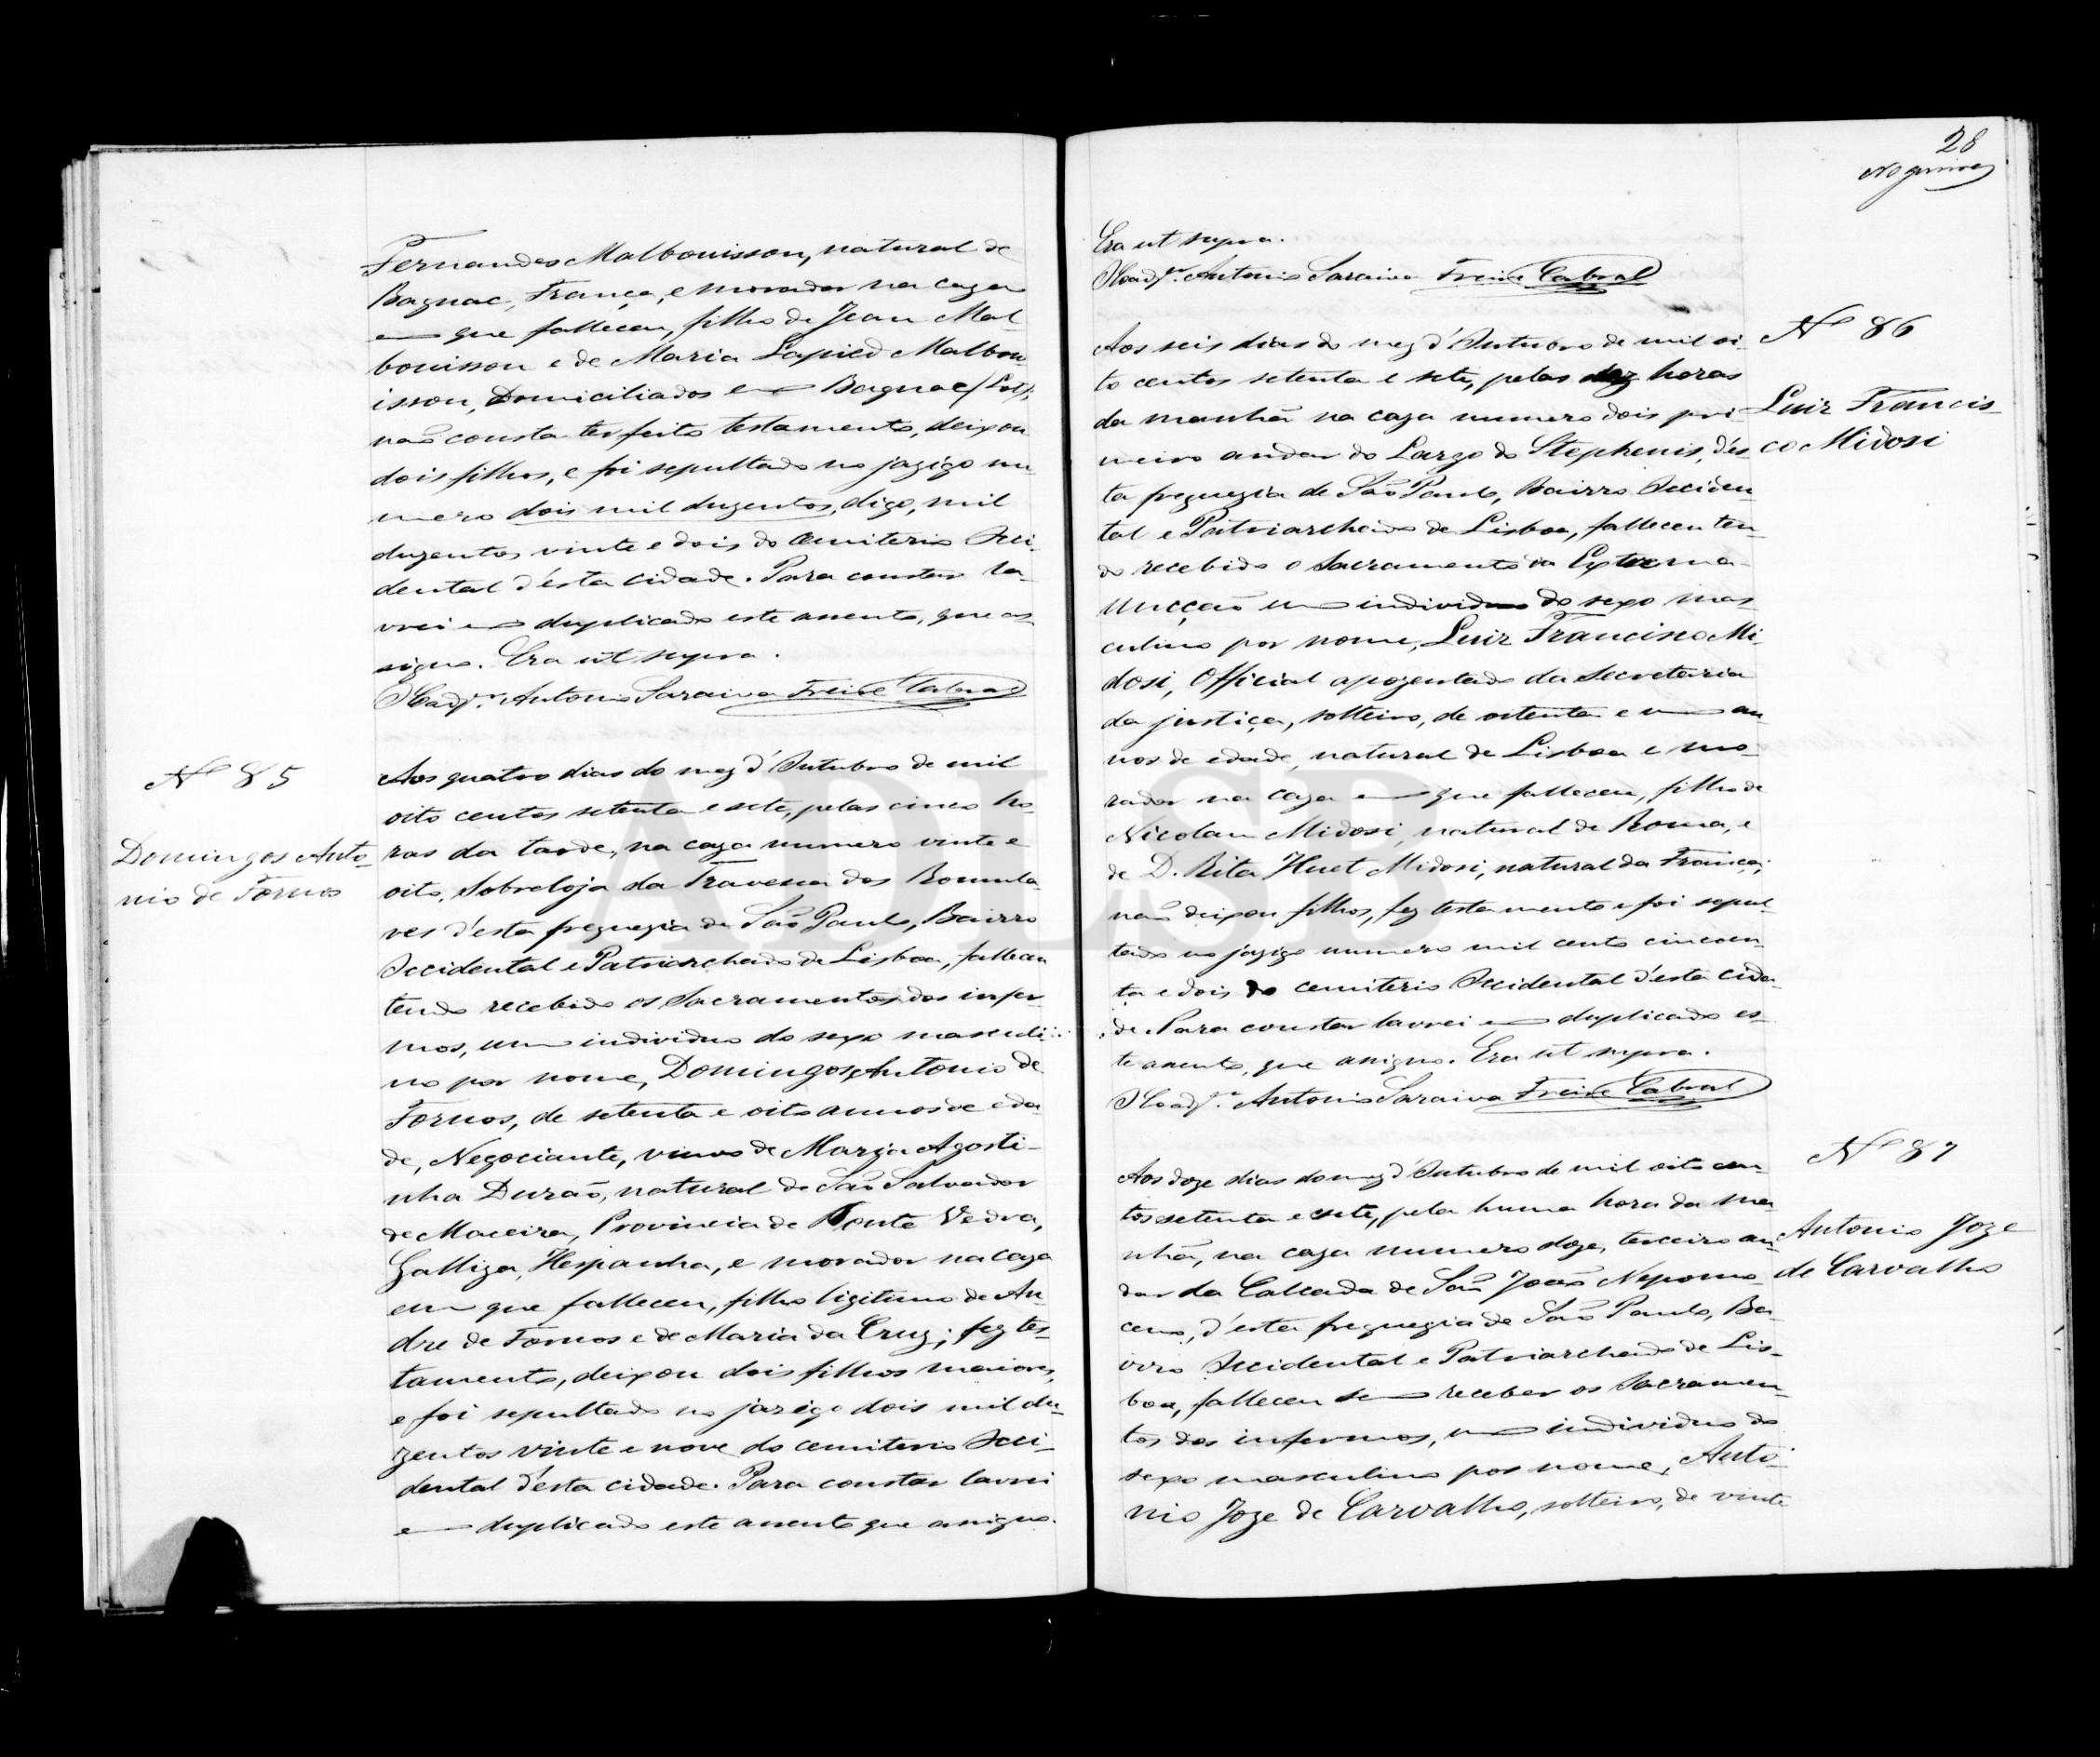 Fernandes Malbouisson, natural de
Bagnac, França, e morador na caza
em que falleceu, filho de Jean Mal-
bouisson e de Maria Lapied Malbou-
isson, Domiciliados em Bagnac (Lot);
não consta ter feito testamento, deixou
dois filhos, e foi sepultado no jazigo nu-
mero dois mil duzentos, digo, mil
duzentos vinte e dois do cemiterio Occi-
dental d'esta cidade. Para constar la-
vrei em duplicado este assento, que as-
signo. Era ut supra.
O Coadjor. Antonio Saraiva Freire Cabral
Nº 85
Domingos Anto-
nio de Fornos
Aos quatro dias do mez d'Outubro de mil
oito centos setenta e sete, pelas cinco ho-
ras da tarde, na caza numero vinte e
oito, Sobreloja da Travessa dos Romula-
res d'esta freguezia de São Paulo, Bairro
Occidental e Patriarchado de Lisboa, falleceu
tendo recebido os Sacramentos dos infer-
mos, um individuo do sexo masculi-
no por nome, Domingos Antonio de
Fornos, de setenta e oito annos de eda-
de, Negociante, viuvo de Maria Agosti-
nha Durão, natural de São Salvador
de Maceira, Provincia de Ponte Vedra,
Galliza, Hespanha, e morador na caza
em que falleceu, filho ligitimo de An-
dre de Fornos e de Maria da Cruz; fez tes-
tamento, deixou dois filhos maiores,
e foi sepultado no jazigo dois mil du-
zentos vinte e nove do cemiterio Occi-
dental d'esta cidade. Para constar lavrei
em duplicado este assento que assigno.
28
Era ut supra.
O Coadjor. Antonio Saraiva Freire Cabral
Nº 86
Luiz Francis-
co Midosi
Aos seis dias do mez d'Outubro de mil oi-
to centos setenta e sete, pelas dez horas
da manhã na caza numero dois pri-
meiro andar do Largo do Stephenis, d'es-
ta freguezia de São Paulo, Bairro Occiden-
tal e Patriarchado de Lisboa, falleceu ten-
do recebido o Sacramento da Extrema-
Uncção um individuo do sexo mas-
culino por nome, Luiz Francisco Mi-
dosi, Official apozentado da Secretaria
da justiça, solteiro, de oitenta e um an-
nos de edade, natural de Lisboa e mo-
rador na caza em que falleceu, filho de
Nicolau Midosi, natural de Roma, e
de D. Rita Huet Midosi, natural da França;
não deixou filhos, fez testamento e foi sepul-
tado no jazigo numero mil cento cincoen-
ta e dois do cemiterio Occidental d'esta cida-
de. Para constar lavrei em duplicado es-
te assento, que assigno. Era ut supra.
O Coadjor. Antonio Saraiva Freire Cabral
Nº 87
Antonio Joze
de Carvalho
Aos doze dias do mez d'Outubro de mil oito cen-
tos setenta e sete, pela huma hora da ma-
nhã, na caza numero doze, terceiro an-
dar da Calcada de São João Nepomo-
ceno, d'esta freguezia de São Paulo, Ba-
irro Occidental e Patriarchado de Lis-
boa, falleceu sem receber os Sacramen-
tos dos infermos, um individuo do
sexo masculino por nome, Anto-
nio Joze de Carvalho, solteiro, de vinte
ADLSB